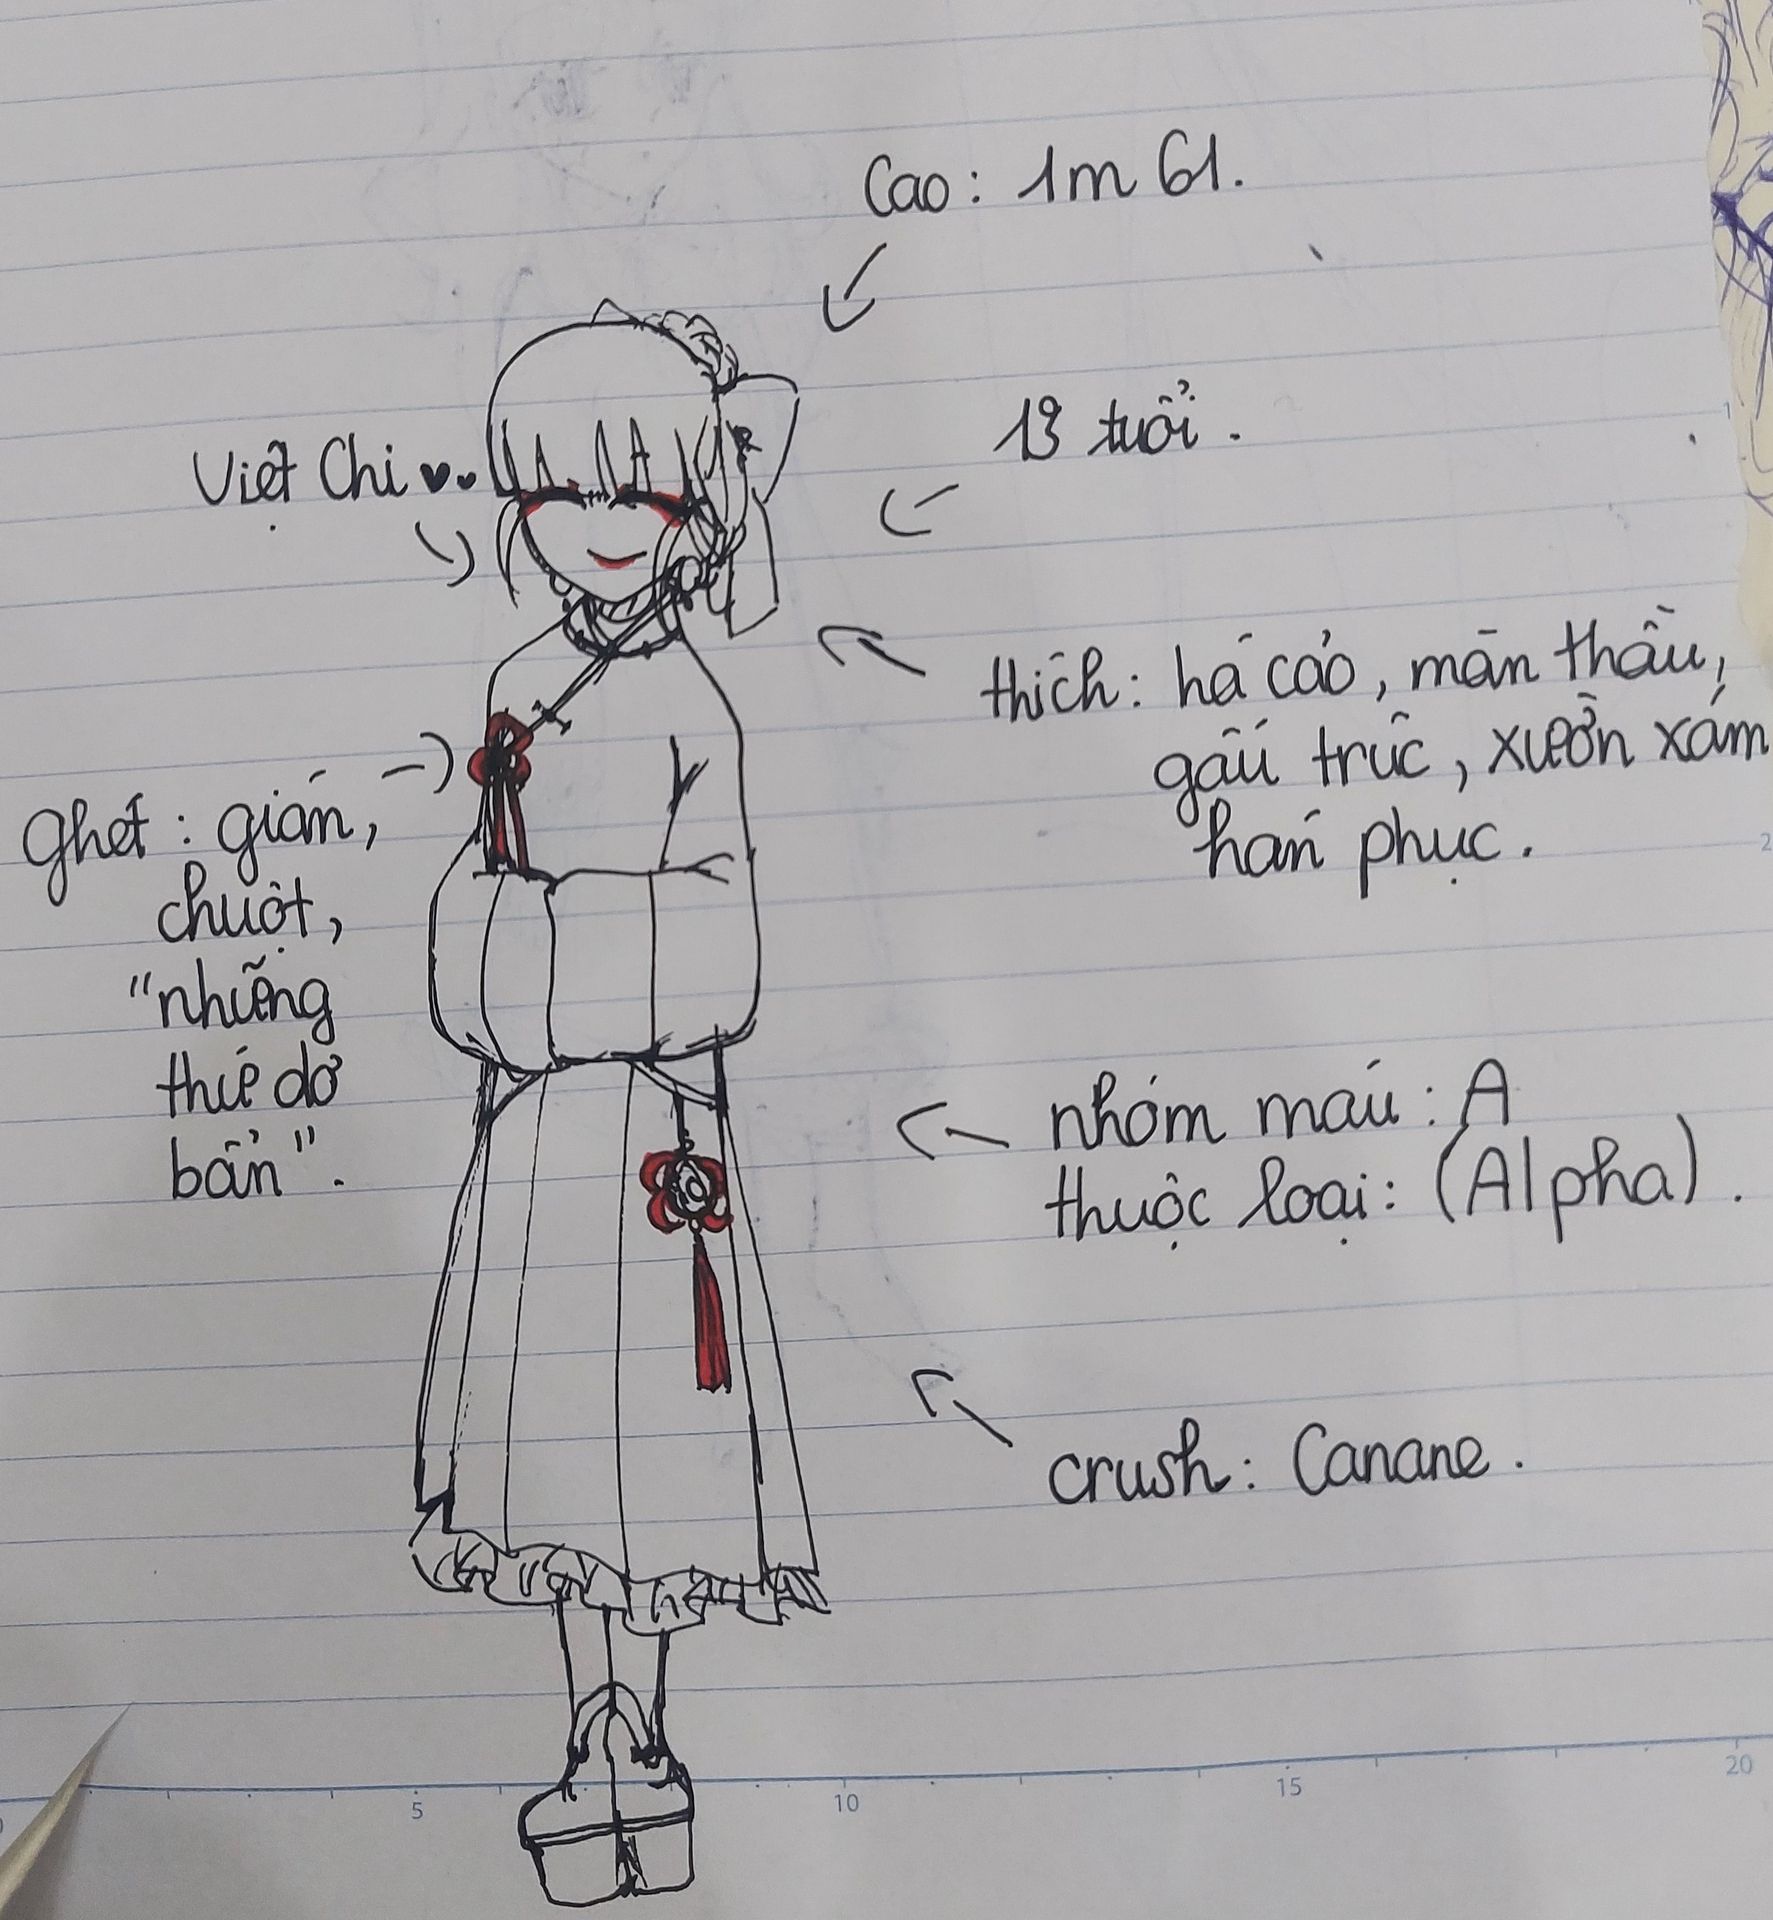 Cao: 1m 61.
13 tuổi.
Việt Chi ♥♥
thích: há cảo, màn thầu,
gấu trúc, xườn xám
hán phục.
ghét: gián,
chuột,
"những
thứ dơ
bẩn".
nhóm máu: A
thuộc loại: (Alpha).
crush: Canane.
5
10
15
20
1
2